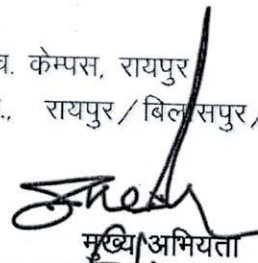 व. केम्पस, रायपुर
., रायपुर/बिलासपुर/
मुख्य अभियंता